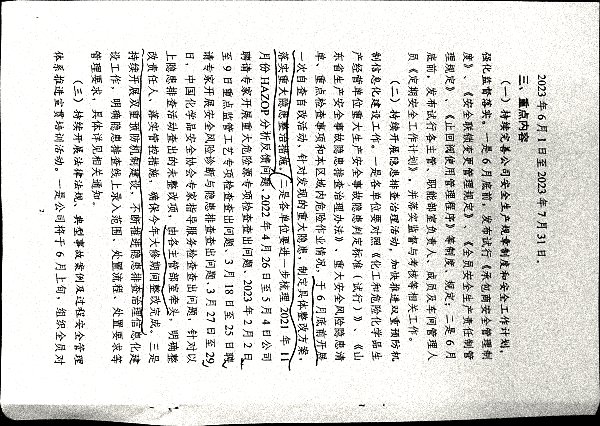 2023 年 6 月 1 日至 2023 年 7 月 31 日
三、重点内容
（一）持续完善公司安全生产规章制度和安全工作计划，
强化监督落实。一是 6 月底前，发布试行《承包商安全管理制
度》、《安全联锁变更管理规定》、《全员安全生产责任制管
理规定》、《止回阀使用管理程序》等制度、规定；二是 6 月
底前，发布试行各主管、职能部室负责人、成员及车间管理人
员《定期安全工作计划》，并落实监督与考核等相关工作。
（二）持续开展隐患排查治理活动，加快推进双重预防机
制信息化建设工作。一是各单位要对照《化工和危险化学品生
产经营单位重大生产安全事故隐患判定标准（试行）》、《山
东省生产安全事故隐患排查治理办法》、重大安全风险隐患清
单、重点检查事项和本区域内危险作业情况，于 6 月底前开展
一次自查自改活动，针对发现的重大隐患，制定具体整改方案，
落实重大隐患整治措施。二是各单位要进一步梳理 2021 年 11
月份 HAZOP 分析反馈问题、2022 年 4 月 26 日至 5 月 4 日公司
聘请专家开展重大危险源专项检查查出问题、2023 年 2 月 2 日
至 9 日重点监管工艺专项检查查出问题、3 月 18 日至 25 日聘
请专家开展安全风险诊断与隐患排查查出问题、3 月 27 日至 29
日，中国化学品安全协会专家指导服务检查查出问题，针对以
上隐患排查活动查出的未整改项，由各主管部室牵头，明确整
改责任人、落实管控措施，确保今年大修期间整改完成。三是
持续开展双重预防机制建设，不断推进隐患排查治理信息化建
设工作，明确隐患排查线上录入范围、处置流程、处置要求等
管理要求，具体详见相关通知。
（三）持续开展法律法规、典型事故案例及过程安全管理
体系推进宣贯培训活动。一是公司将于 6 月上旬，组织全员对